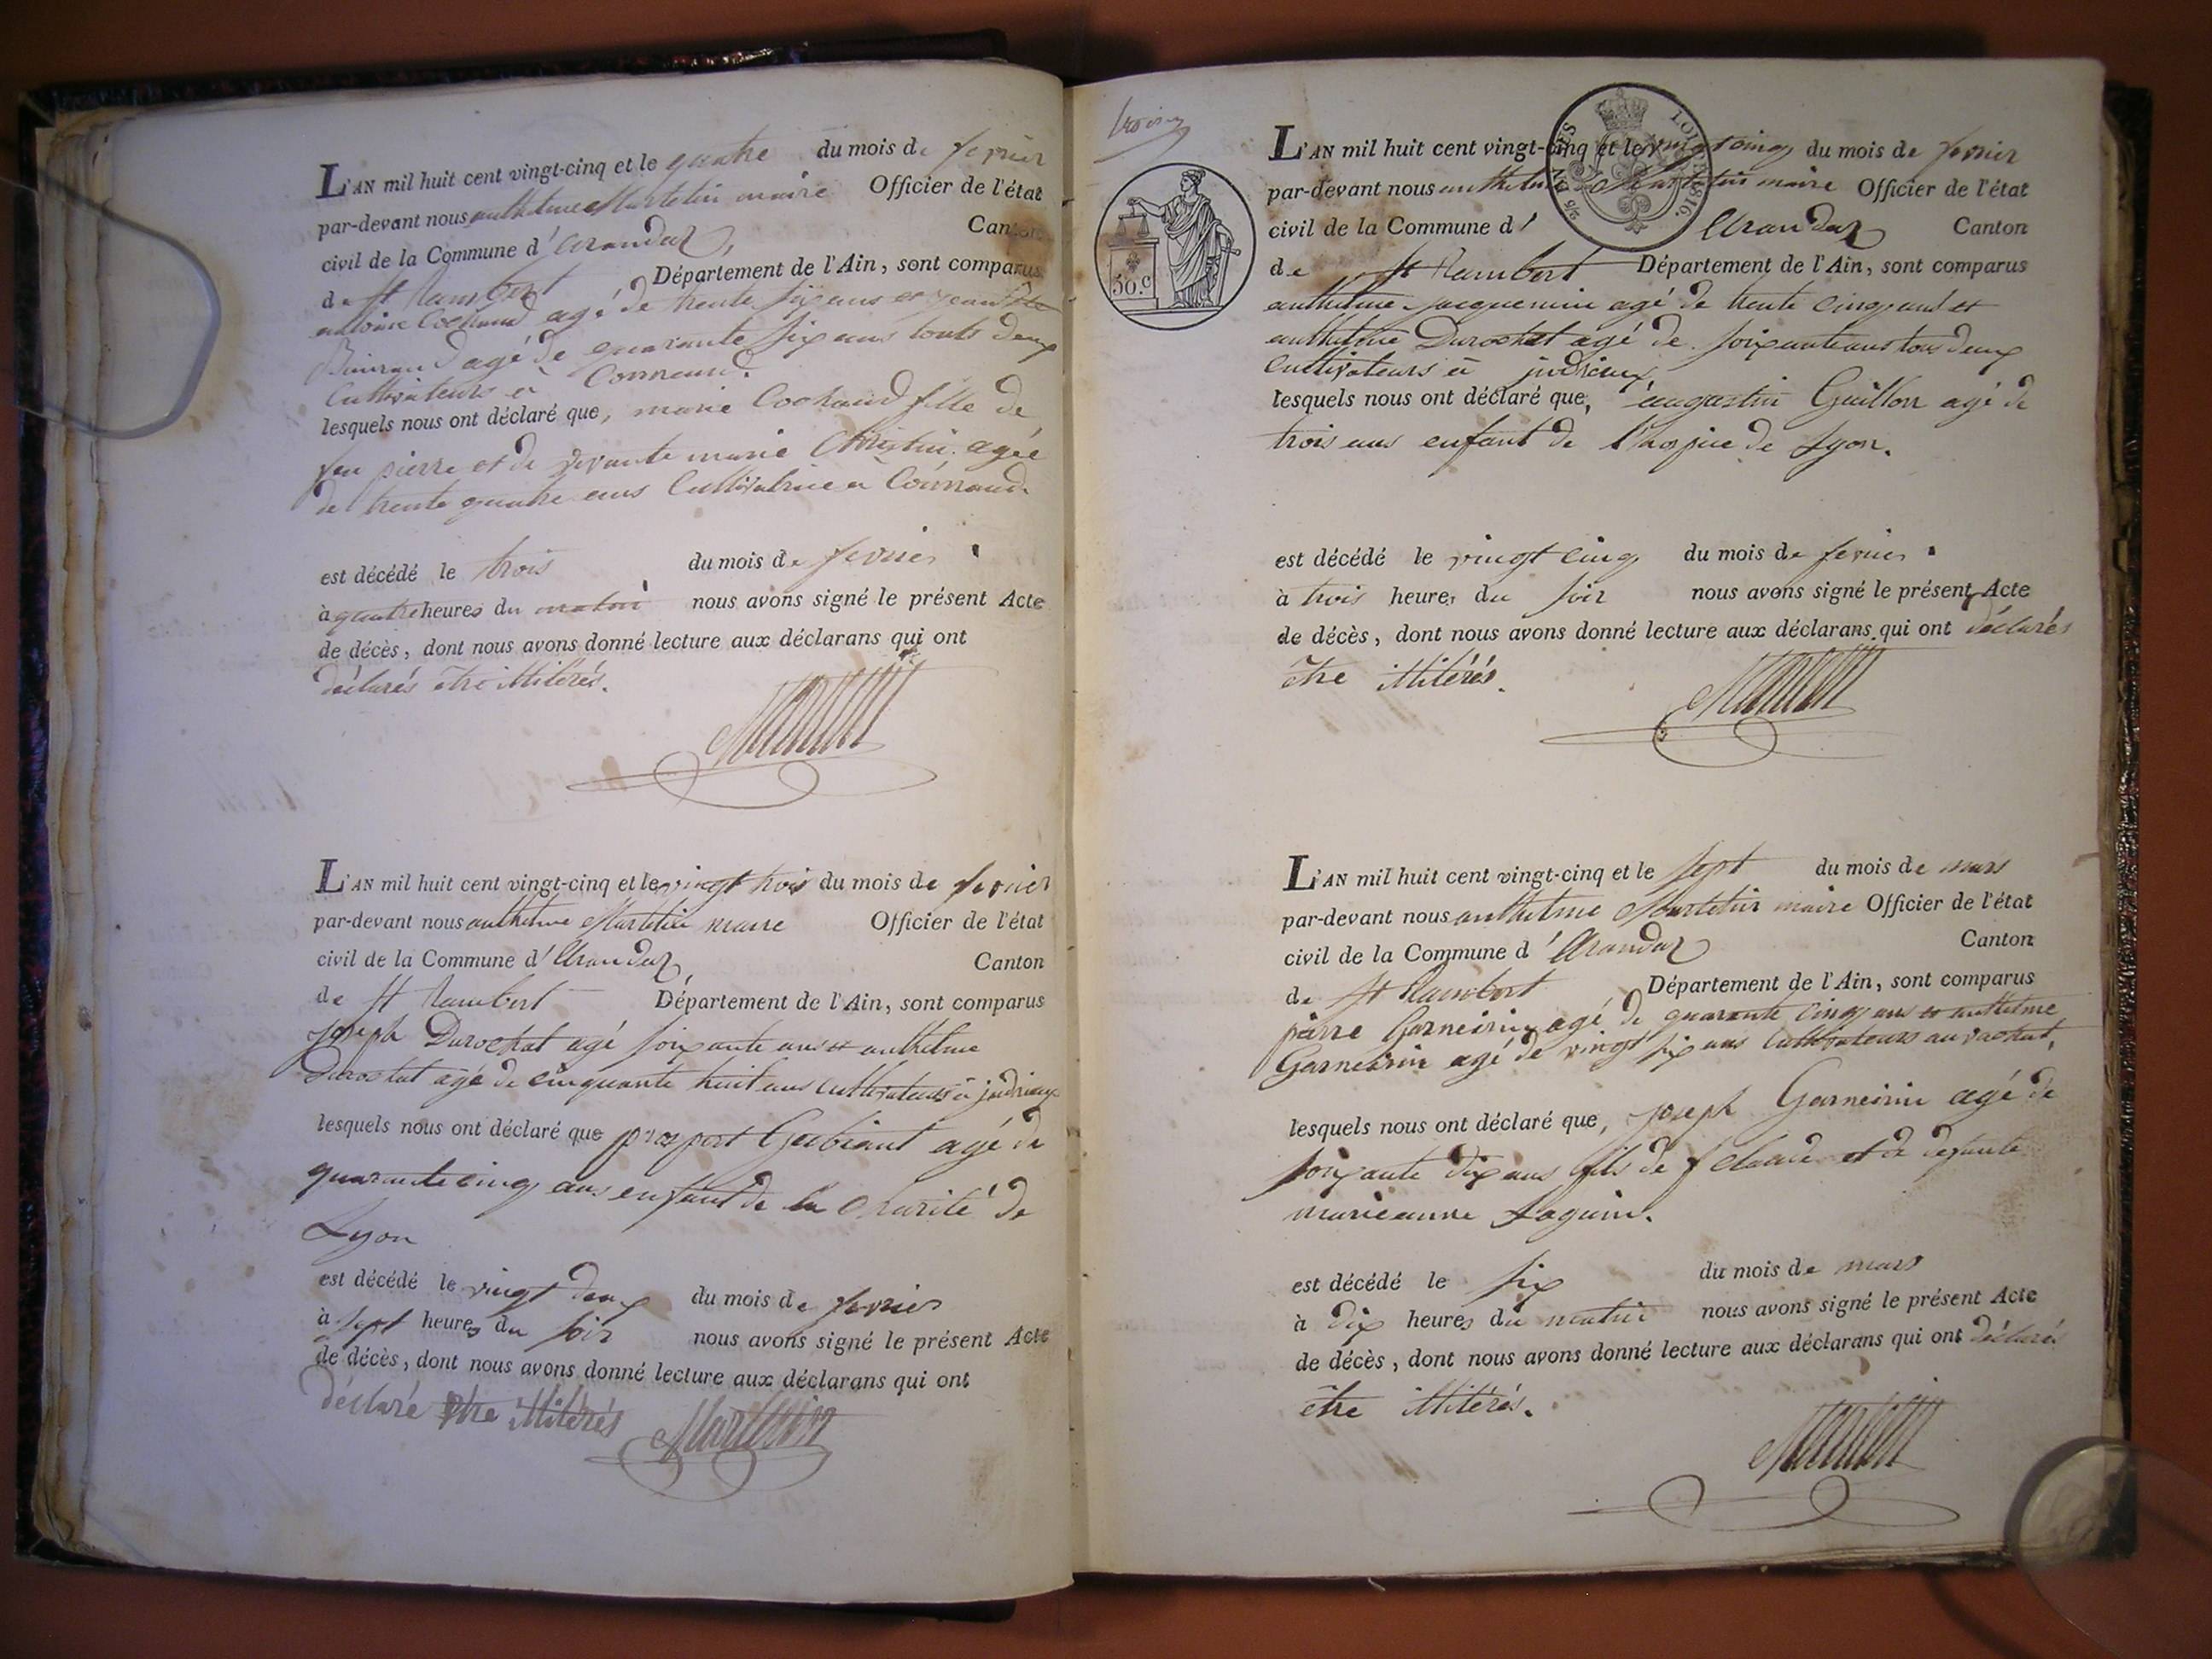 L'AN mil huit cent vingt-cinq et le quatre du mois de fevrier
par-devant nous anthelme Martelin maire Officier de l'état
civil de la Commune d'Arandaz, Canton
de St Rambert Département de l'Ain, sont comparus
antoine Cochaud agé de trente six ans et jean
agé de quarante six ans touts deux
Cultivateurs à
lesquels nous ont déclaré que, marie Cochaud fille de
feu pierre et de vivante marie Christin agée
de trente quatre ans Cultivatrice à
est décédé le trois du mois de fevrier
à quatre heures du matin nous avons signé le présent Acte
de décès, dont nous avons donné lecture aux déclarans qui ont
déclarés être illitérés.
Martelin
L'AN mil huit cent vingt-cinq et le vingt trois du mois de fevrier
par-devant nous anthelme Martelin maire Officier de l'état
civil de la Commune d'Arandaz, Canton
de St Rambert Département de l'Ain, sont comparus
joseph Durochat agé soixante ans et anthelme
Durochat agé de cinquante huit ans cultivateurs à judrieux
lesquels nous ont déclaré que prospert Gubiant agé de
quarante cinq ans enfant de la Charité de
Lyon
est décédé le vingt deux du mois de fevrier
à sept heures du soir nous avons signé le présent Acte
de décès, dont nous avons donné lecture aux déclarans qui ont
déclaré être illitérés Martelin
trois
50.c
LOI DE 1816.
L'AN mil huit cent vingt-cinq et le vingt cinq du mois de fevrier
par-devant nous anthelme Martelin maire Officier de l'état
civil de la Commune d' Arandaz Canton
de St Rambert Département de l'Ain, sont comparus
anthelme jacquemin agé de trente cinq ans et
anthelme Durochat agé de soixante ans tous deux
Cultivateurs à judrieux
lesquels nous ont déclaré que, augustin Guillon agé de
trois ans enfant de l'hospice de Lyon.
est décédé le vingt cinq du mois de fevrier
à trois heures du soir nous avons signé le présent Acte
de décès, dont nous avons donné lecture aux déclarans qui ont déclarés
être illitérés.
Martelin
L'AN mil huit cent vingt-cinq et le sept du mois de mars
par-devant nous anthelme Martelin maire Officier de l'état
civil de la Commune d'Arandaz Canton
de St Rambert Département de l'Ain, sont comparus
pierre Garneirin agé de quarante cinq ans et anthelme
Garneirin agé de vingt six ans Cultivateurs au vachat,
lesquels nous ont déclaré que, joseph Garneirin agé de
soixante dix ans fils de f claude et de defunte
marieanne
est décédé le six du mois de mars
à dix heures du matin nous avons signé le présent Acte
de décès, dont nous avons donné lecture aux déclarans qui ont déclarés
être illitérés.
Martelin